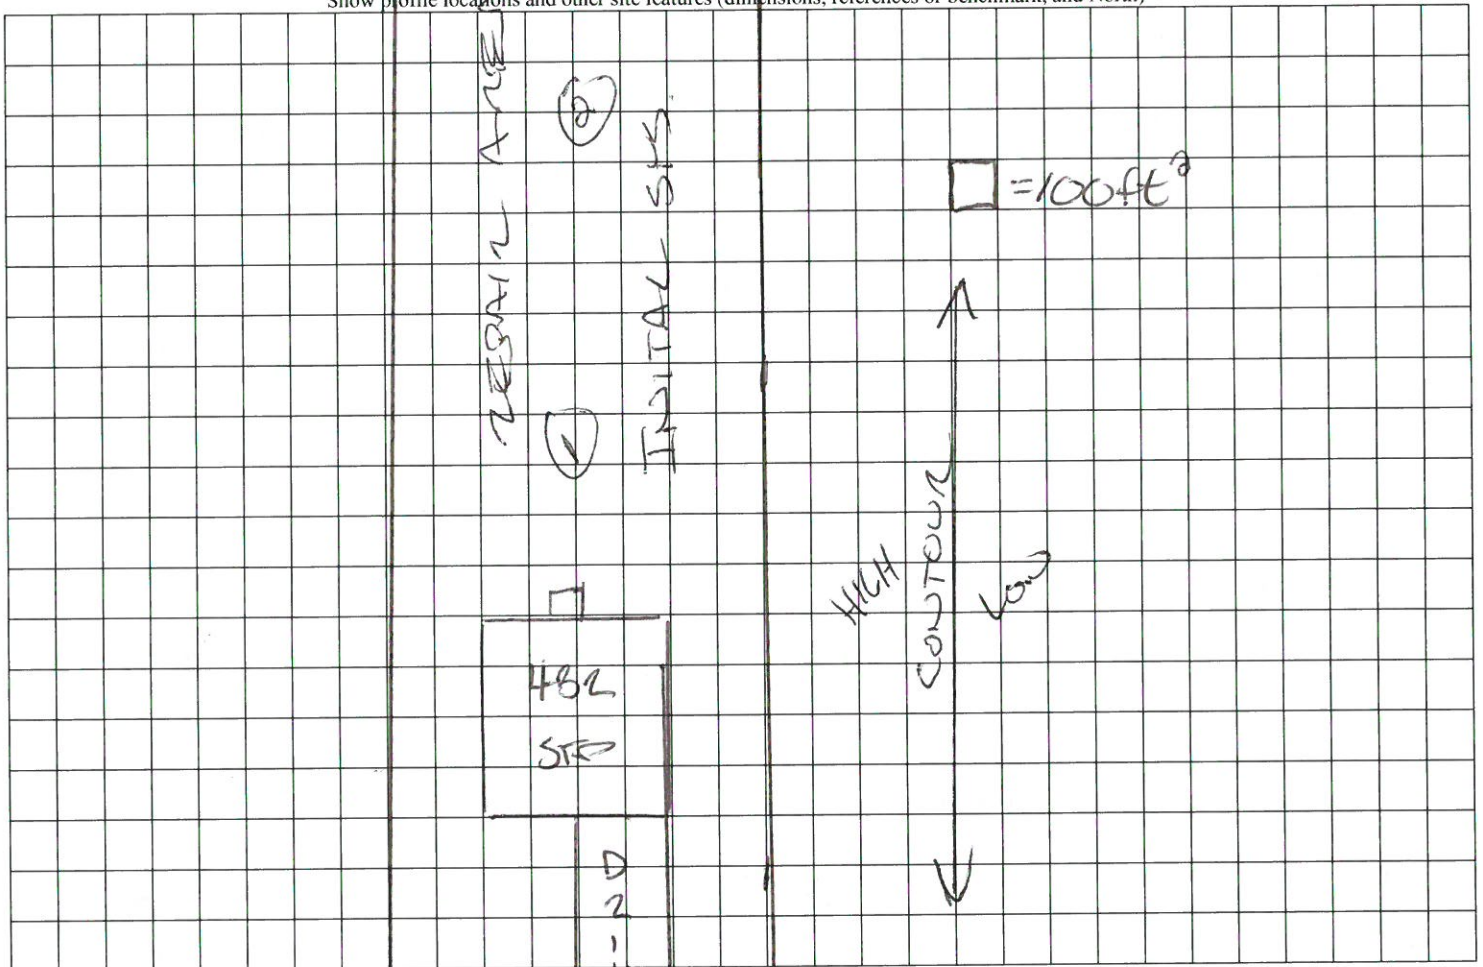 Show profile locations and other site features (dimensions, references or benchmark, and North)
REPAIR AREA
2
INITAL SYS.
= 100 ft²
1
HIGH
CONTOUR
LOW